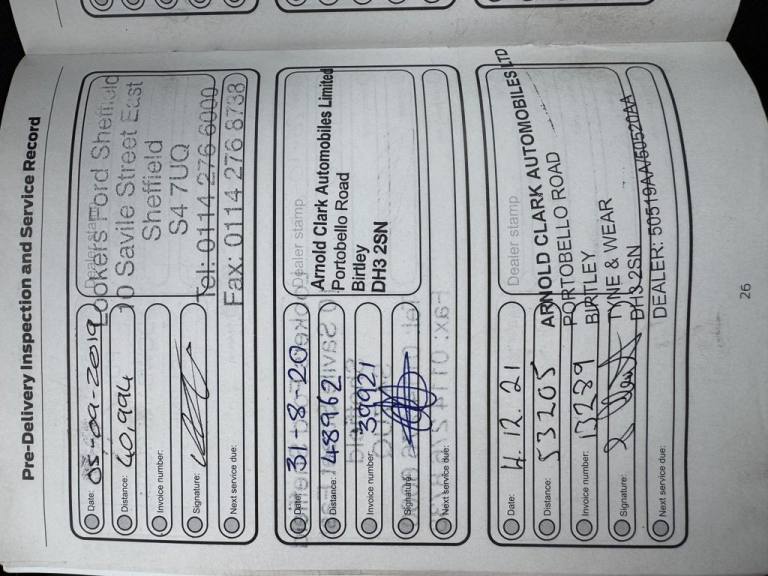 Pre-Delivery Inspection and Service Record
Date: 05-09-2019
Distance: 40,994
Invoice number:
Signature:
Next service due:
Dealer stamp
Lookers Ford Sheffield
10 Savile Street East
Sheffield
S4 7UQ
Tel: 0114 276 6000
Fax: 0114 276 8738
Date: 31-8-20
Distance: 48962
Invoice number: 39921
Signature:
Next service due:
Dealer stamp
Arnold Clark Automobiles Limited
Portobello Road
Birtley
DH3 2SN
Date: 4.12.21
Distance: 53205
Invoice number: 13289
Signature:
Next service due:
Dealer stamp
ARNOLD CLARK AUTOMOBILES LTD
PORTOBELLO ROAD
BIRTLEY
TYNE & WEAR
DH3 2SN
DEALER: 50519AA/50520AA
26